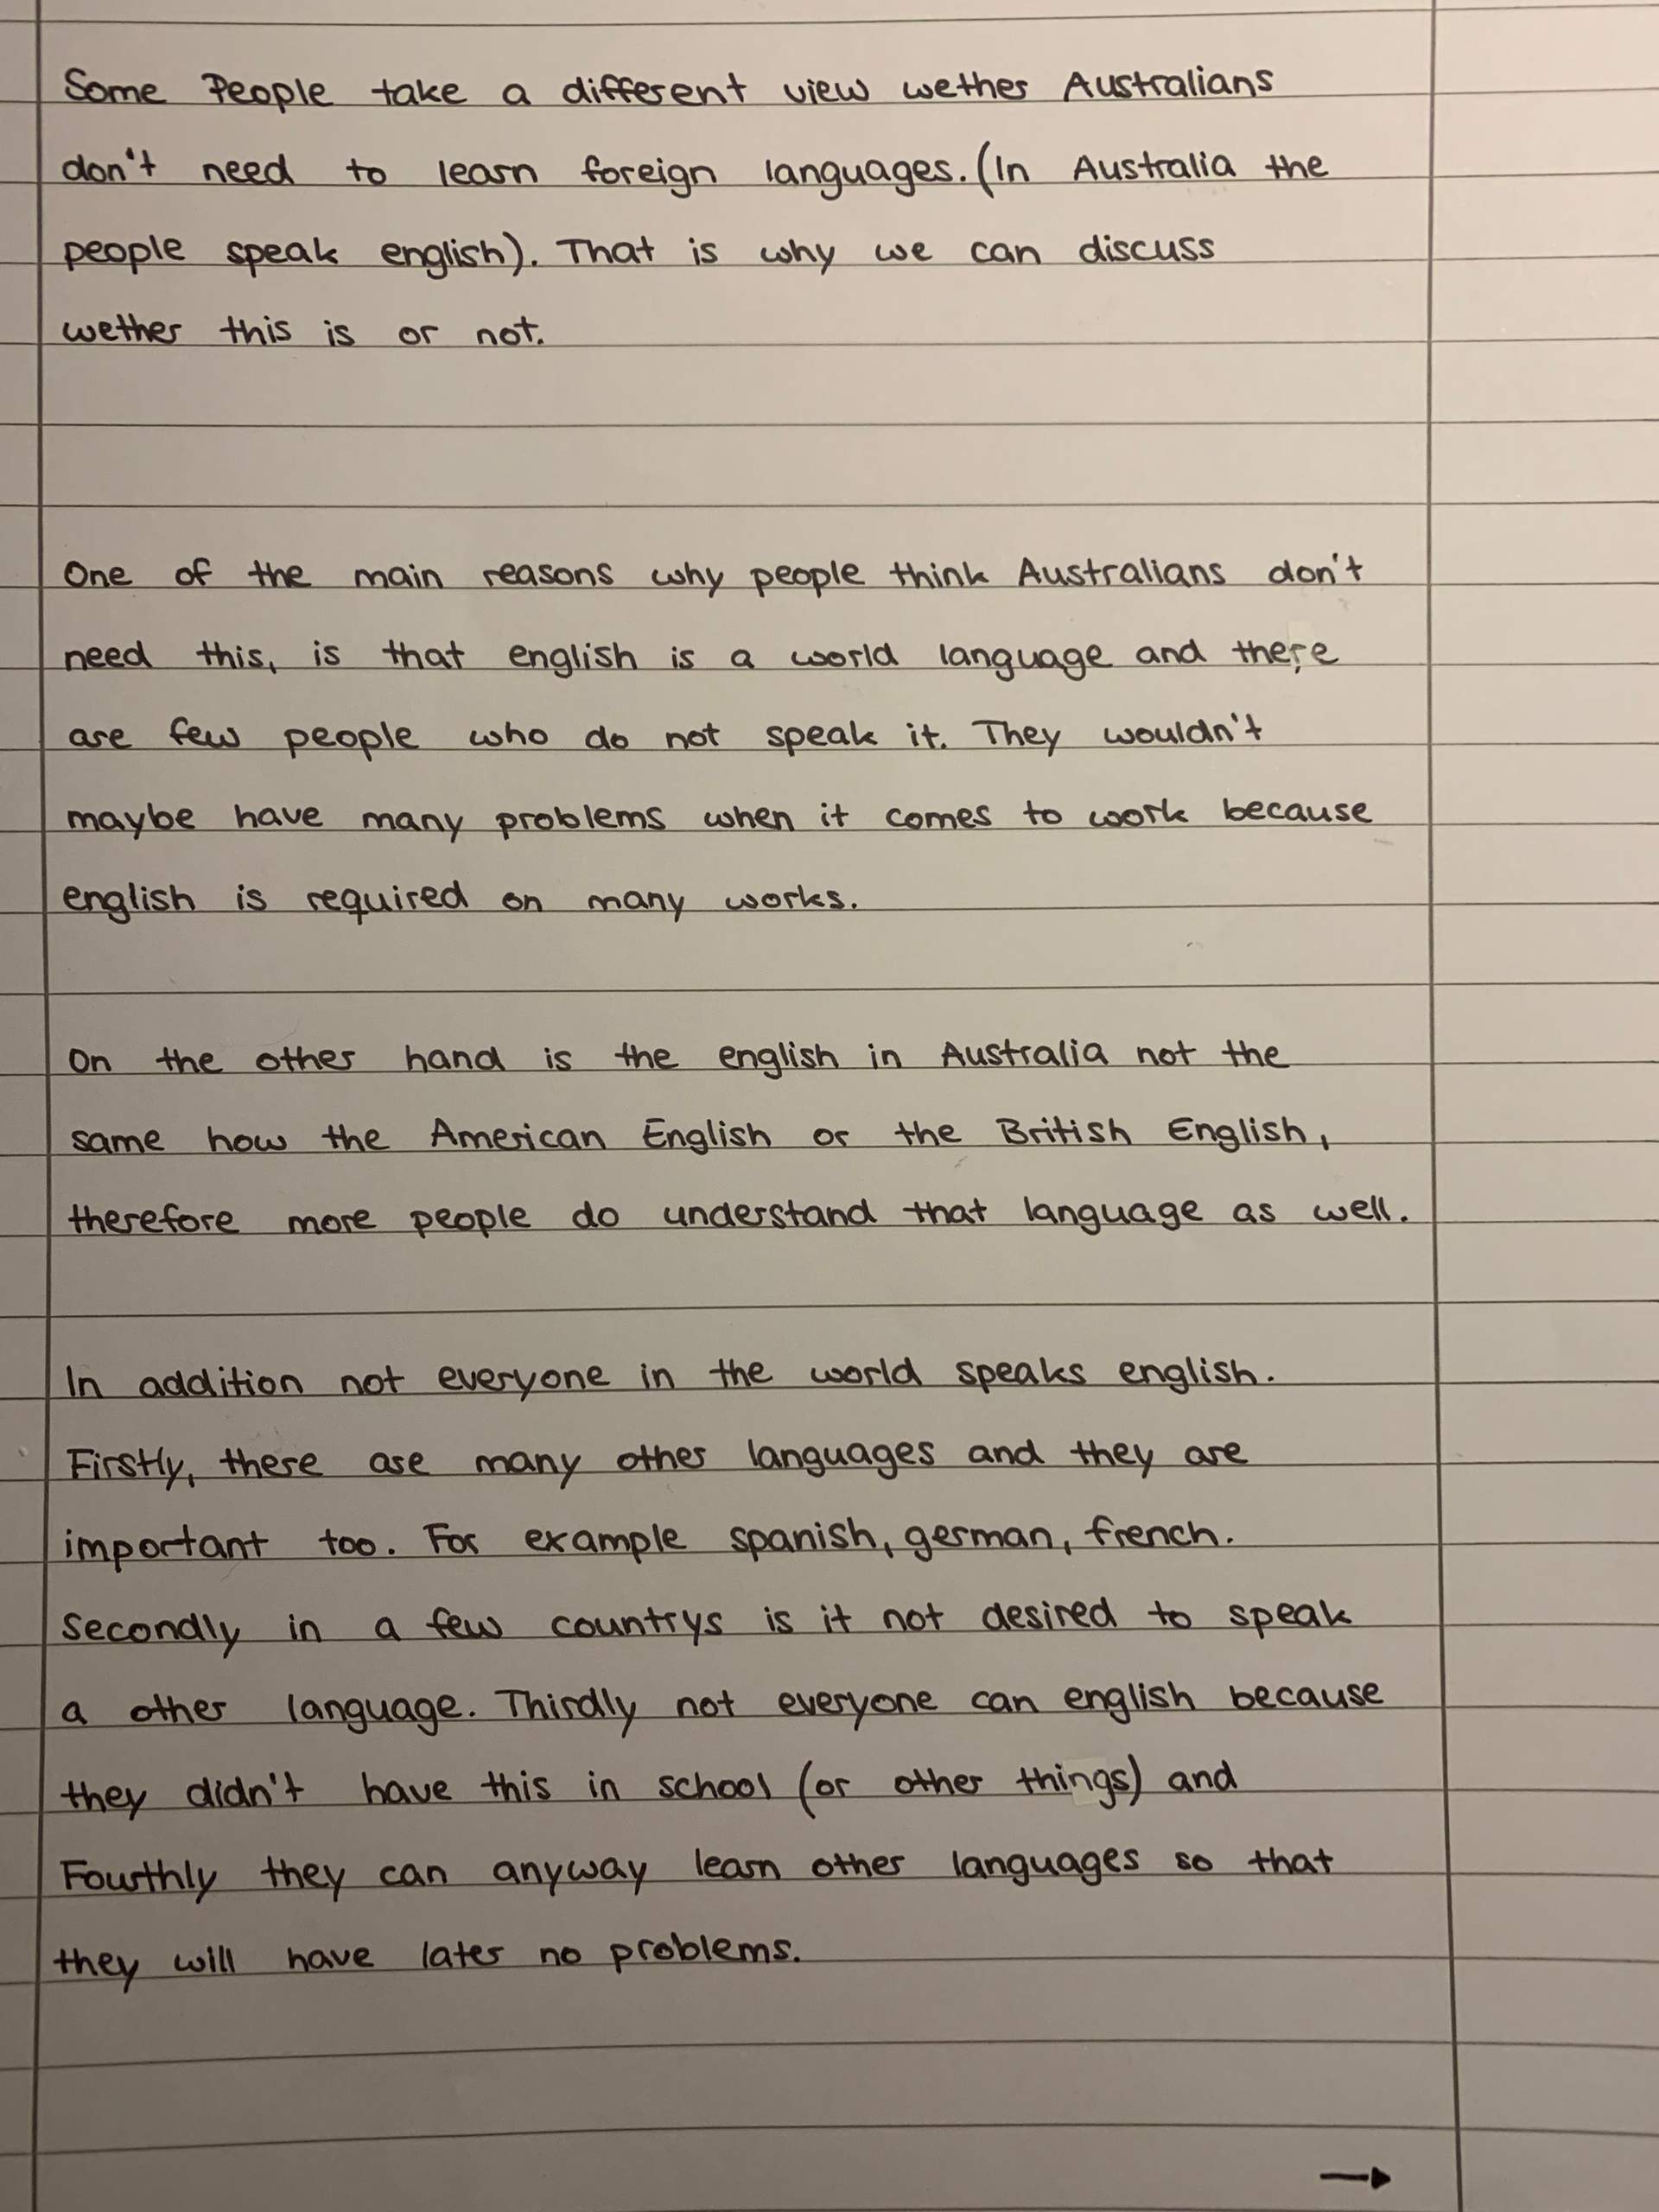 Some People take a different view wether Australians
don't need to learn foreign languages. (In Australia the
people speak english). That is why we can discuss
wether this is or not.
One of the main reasons why people think Australians don't
need this, is that english is a world language and there
are few people who do not speak it. They wouldn't
maybe have many problems when it comes to work because
english is required on many works.
On the other hand is the english in Australia not the
same how the American English or the British English,
therefore more people do understand that language as well.
In addition not everyone in the world speaks english.
Firstly, there are many other languages and they are
important too. For example spanish, german, french.
Secondly in a few countrys is it not desired to speak
a other language. Thirdly not everyone can english because
they didn't have this in school (or other things) and
Fourthly they can anyway learn other languages so that
they will have later no problems.
→